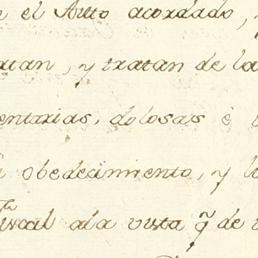 n el Auto acordado,
atan, y tratan de la
entarias, dolosas è
obedecimiento, y l
iscal ala vista q̃ de